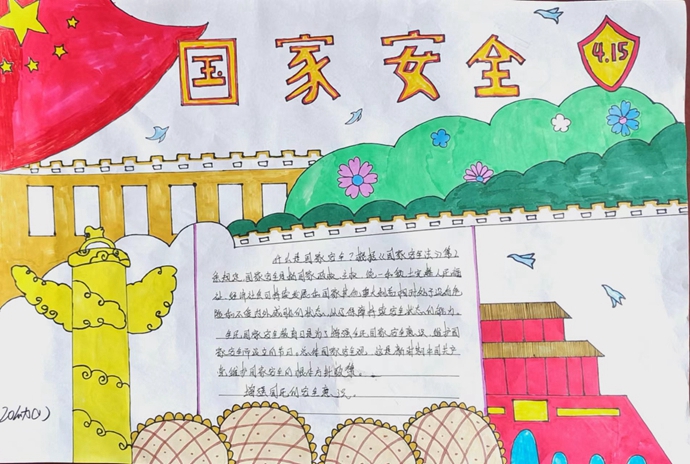 国家安全
4.15
什么是国家安全？根据《国家安全法》第2
条规定国家安全是指国家政权、主权、统一和领土完整、人民福
祉、经济社会可持续发展和国家其他重大利益相对处于没有危
险和不受内外威胁的状态，以及保障持续安全状态的能力。
全民国家安全教育日是为了增强全民国家安全意识，维护国
家安全而设立的节日。总体国家安全观，
维护国家安全的根本方针政策。
增强国民的安全意识。